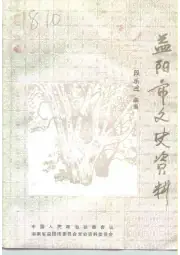 C1810
益阳市文史资料
中国人民政治协商会议
湖南省益阳市委员会文史资料委员会